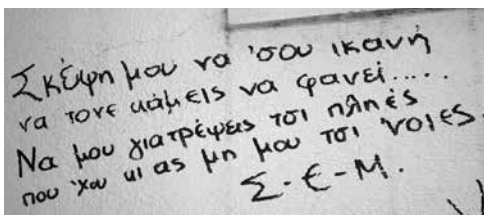 Σκέψη μου να 'σου ικανή
να τονε κάμεις να φανεί.....
Να μου γιατρέψεις τσι πληγές
που 'χω κι ας μη μου τσι 'νοιες.
Σ-Ε-Μ.